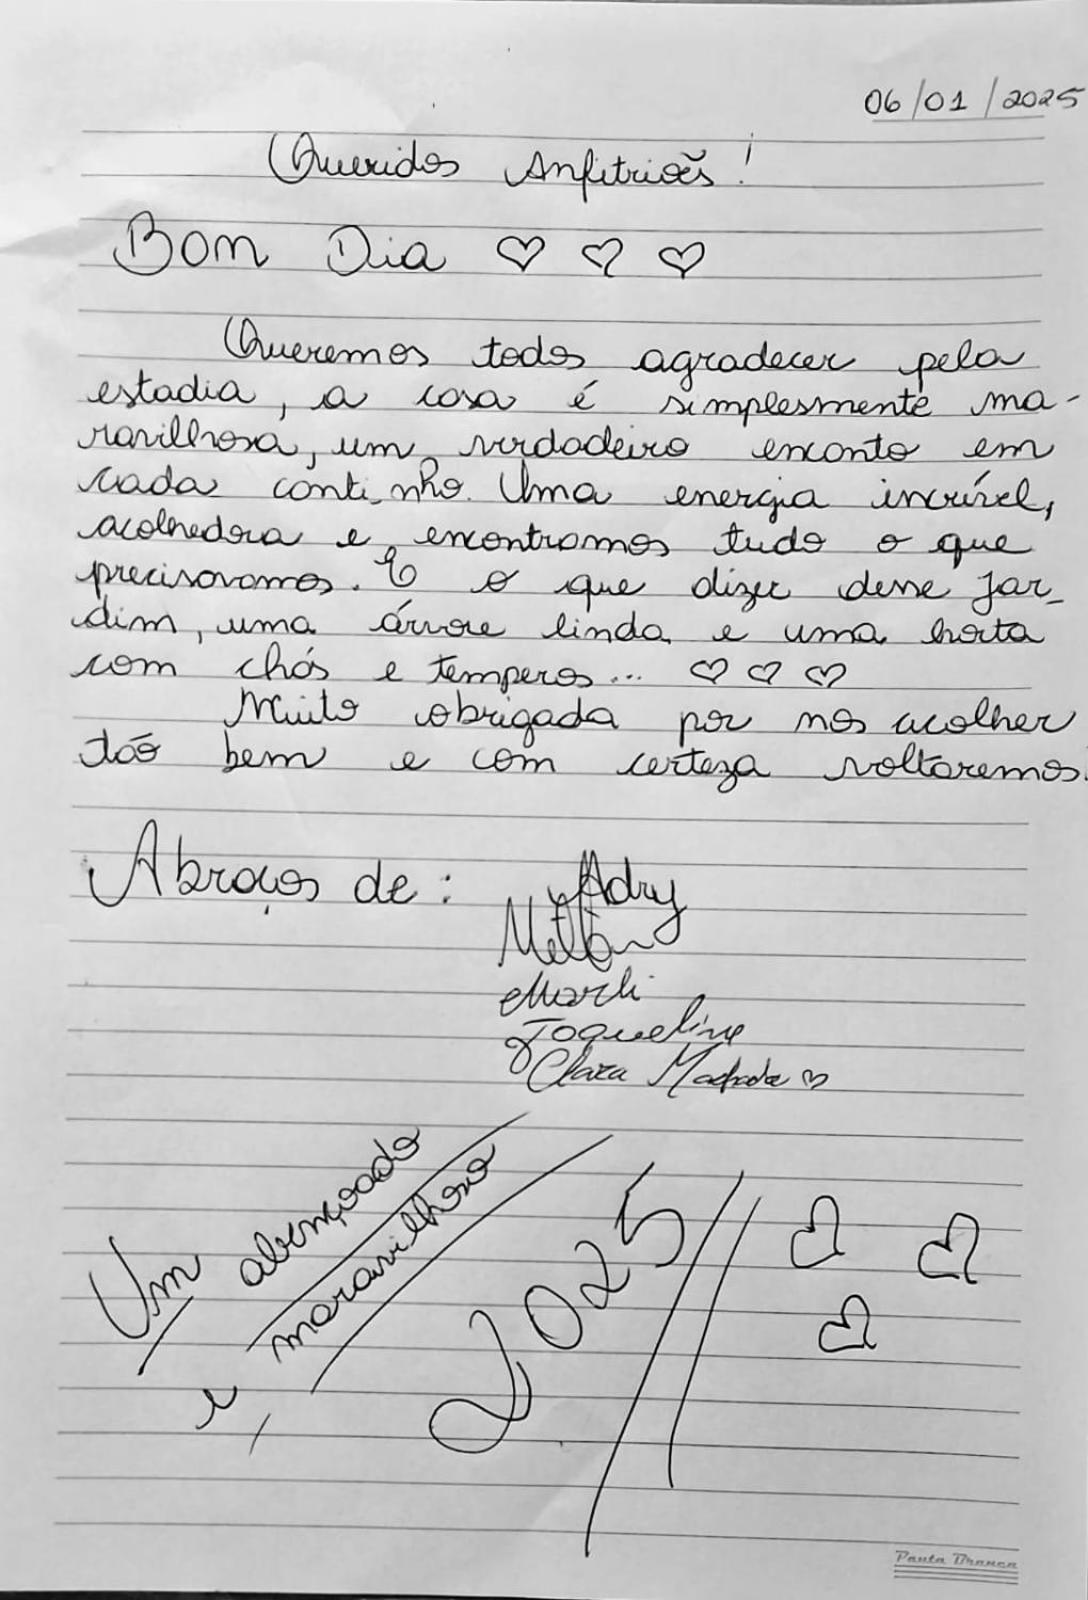 06/01/2025
Queridos Anfitriões!
Bom Dia ♡ ♡ ♡
Queremos todos agradecer pela
estadia, a casa é simplesmente ma-
ravilhosa, um verdadeiro encanto em
cada cantinho. Uma energia incrível,
acolhedora e encontramos tudo o que
precisavamos. E o que dizer desse Jar-
dim, uma árvore linda e uma horta
com chás e temperos... ♡ ♡ ♡
Muito obrigada por nos acolher
tão bem e com certeza voltaremos.
Abraços de: Adry
Marli
Jaqueline
Clara Machado ♡
Um abençoado
e maravilhoso
2025 // ♡ ♡ ♡
Pauta Branca